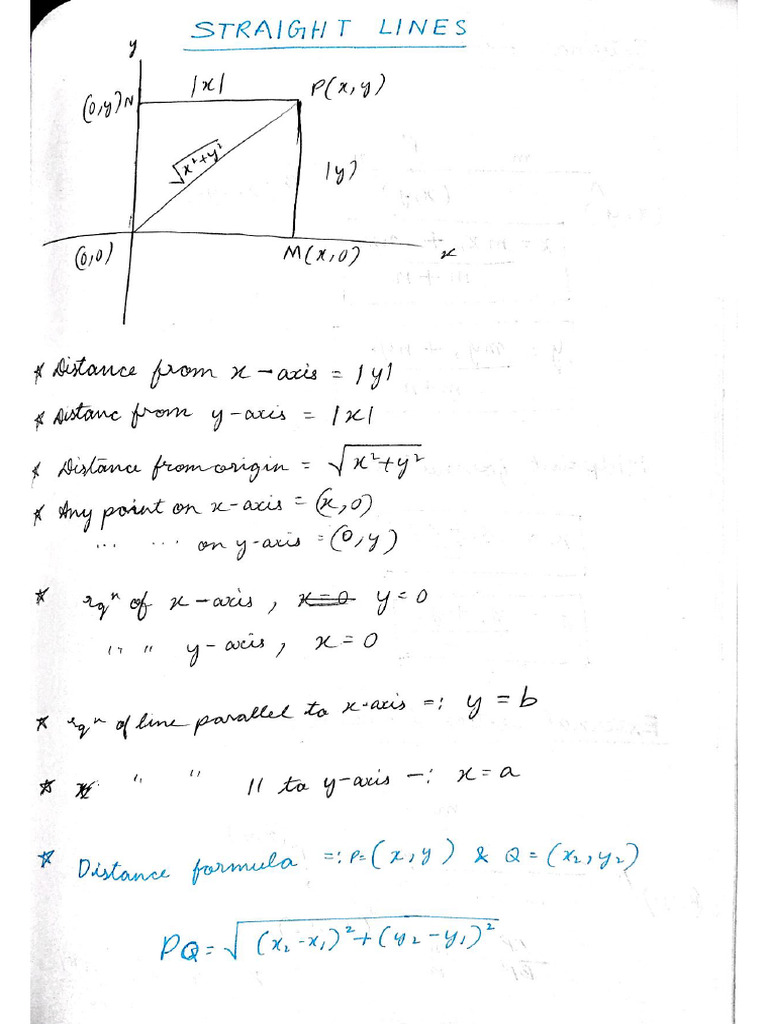 STRAIGHT LINES
y
|x|
P(x,y)
(0,y)N
√x²+y²
|y|
(0,0)
M(x,0)
x
* Distance from x-axis = |y|
* Distanc from y-axis = |x|
* Distance from origin = √x²+y²
* Any point on x-axis = (x,0)
.. ... on y-axis = (0,y)
* Eqⁿ of x-axis, x=0 y=0
" " y-axis, x=0
* Eqⁿ of line parallel to x-axis =: y = b
* " " || to y-axis -: x = a
* Distance formula =: P=(x,y) & Q=(x₂,y₂)
PQ=√(x₂-x₁)²+(y₂-y₁)²